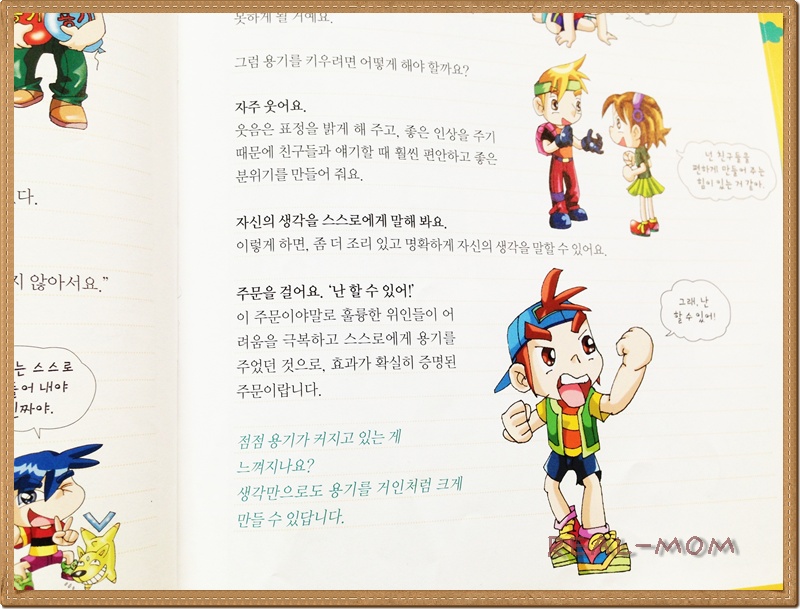 용기
못하게 될 거예요.
그럼 용기를 키우려면 어떻게 해야 할까요?
자주 웃어요.
웃음은 표정을 밝게 해 주고, 좋은 인상을 주기
때문에 친구들과 얘기할 때 훨씬 편안하고 좋은
분위기를 만들어 줘요.
넌 친구들을
편하게 만들어 주는
힘이 있는 거 같아.
다.
자신의 생각을 스스로에게 말해 봐요.
이렇게 하면, 좀 더 조리 있고 명확하게 자신의 생각을 말할 수 있어요.
지 않아서요.”
주문을 걸어요. ‘난 할 수 있어!’
이 주문이야말로 훌륭한 위인들이 어
려움을 극복하고 스스로에게 용기를
주었던 것으로, 효과가 확실히 증명된
주문이랍니다.
그래, 난
할 수 있어!
는 스스로
어 내야
진짜야.
점점 용기가 커지고 있는 게
느껴지나요?
생각만으로도 용기를 거인처럼 크게
만들 수 있답니다.